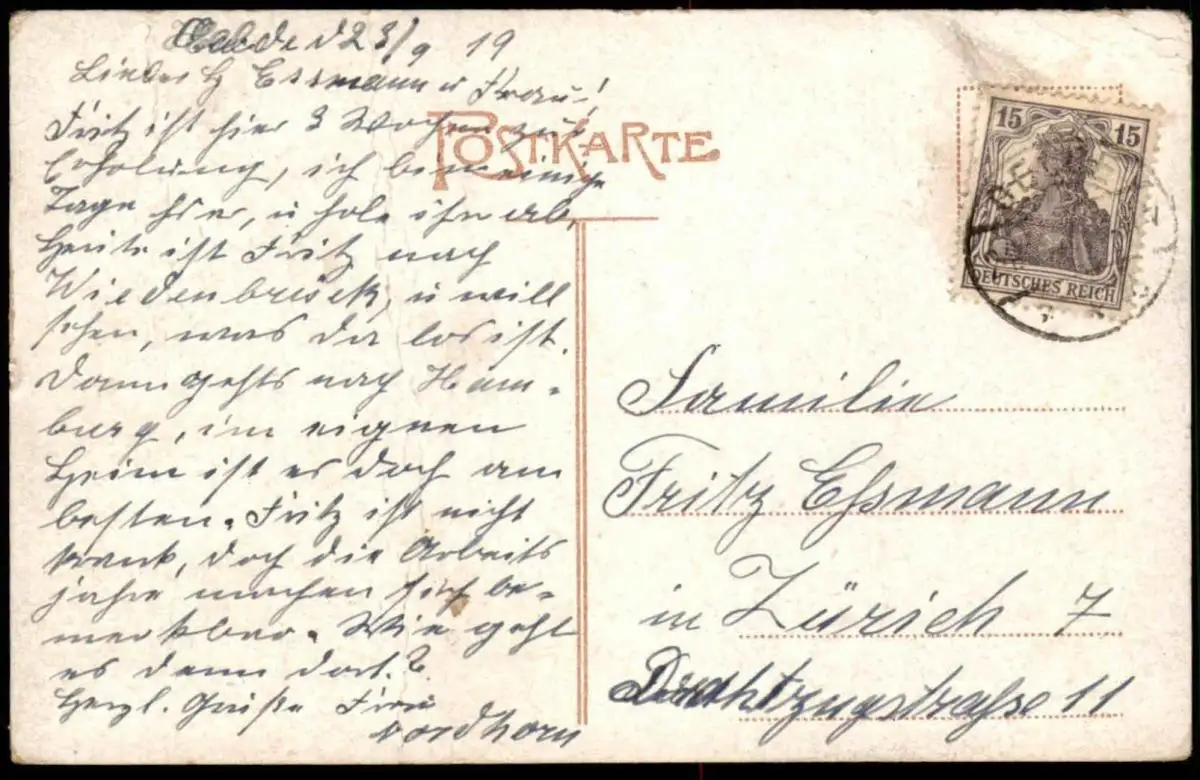 d 23/9 19
Lieber H Essmann u Frau!
Fritz ist hier 3 Wochen zur
Erholung, ich bin einige
Tage hier, u hole ihn ab,
Heute ist Fritz nach
Wiedenbrück, u will
sehen, was da los ist.
Dann gehts nach Ham-
burg, im eignen
Heim ist es doch am
besten. Fritz ist nicht
krank, doch die Arbeits
jahre machen sich be-
merkbar. Wie geht
es denn dort?
Herzl. Grüße Frau
Nordhorn
POSTKARTE
15 15
DEUTSCHES REICH
Familie
Fritz Essmann
in Zürich 7
Drahtzugstraße 11